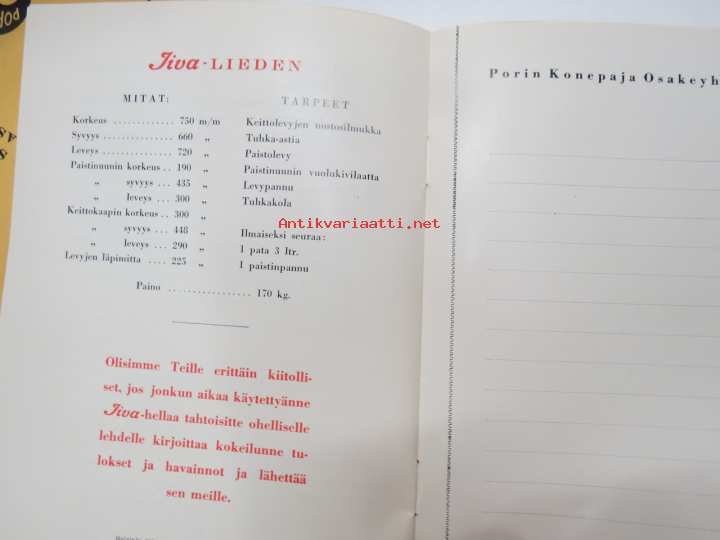 Iiva-LIEDEN
MITAT:
Korkeus ............. 750 m/m
Syvyys .............. 660 „
Leveys .............. 720 „
Paistinuunin korkeus .. 190 „
„ syvyys ... 435 „
„ leveys ... 300 „
Keittokaapin korkeus .. 300 „
„ syvyys ... 448 „
„ leveys ... 290 „
Levyjen läpimitta .... 225 „
TARPEET
Keittolevyjen nostosilmukka
Tuhka-astia
Paistolevy
Paistinuunin vuolukivilaatta
Levypannu
Tuhkakola
Ilmaiseksi seuraa:
1 pata 3 ltr.
1 paistinpannu
Paino ................. 170 kg.
Antikvariaatti.net
Olisimme Teille erittäin kiitolli-
set, jos jonkun aikaa käytettyänne
Iiva-hellaa tahtoisitte ohelliselle
lehdelle kirjoittaa kokeilunne tu-
lokset ja havainnot ja lähettää
sen meille.
Porin Konepaja Osakeyh